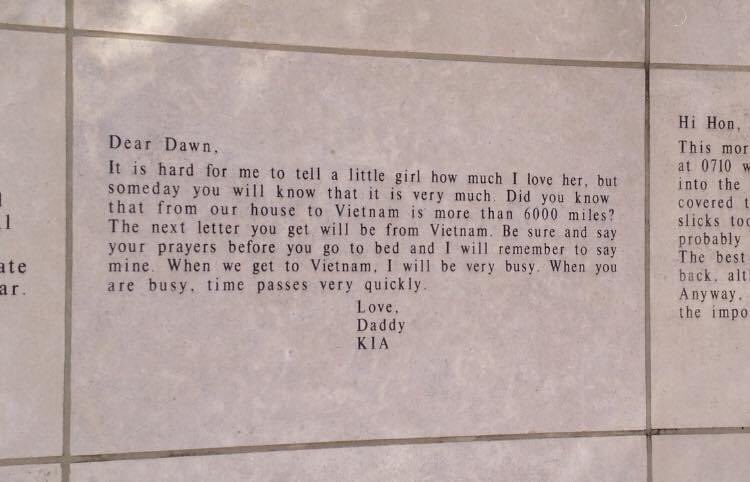 Dear Dawn,
It is hard for me to tell a little girl how much I love her, but
someday you will know that it is very much. Did you know
that from our house to Vietnam is more than 6000 miles?
The next letter you get will be from Vietnam. Be sure and say
your prayers before you go to bed and I will remember to say
mine. When we get to Vietnam, I will be very busy. When you
are busy, time passes very quickly.
Love,
Daddy
KIA
Hi Hon,
This mor
at 0710 w
into the
covered t
slicks too
probably
The best
back, alt
Anyway,
the impo
l
ate
ar.